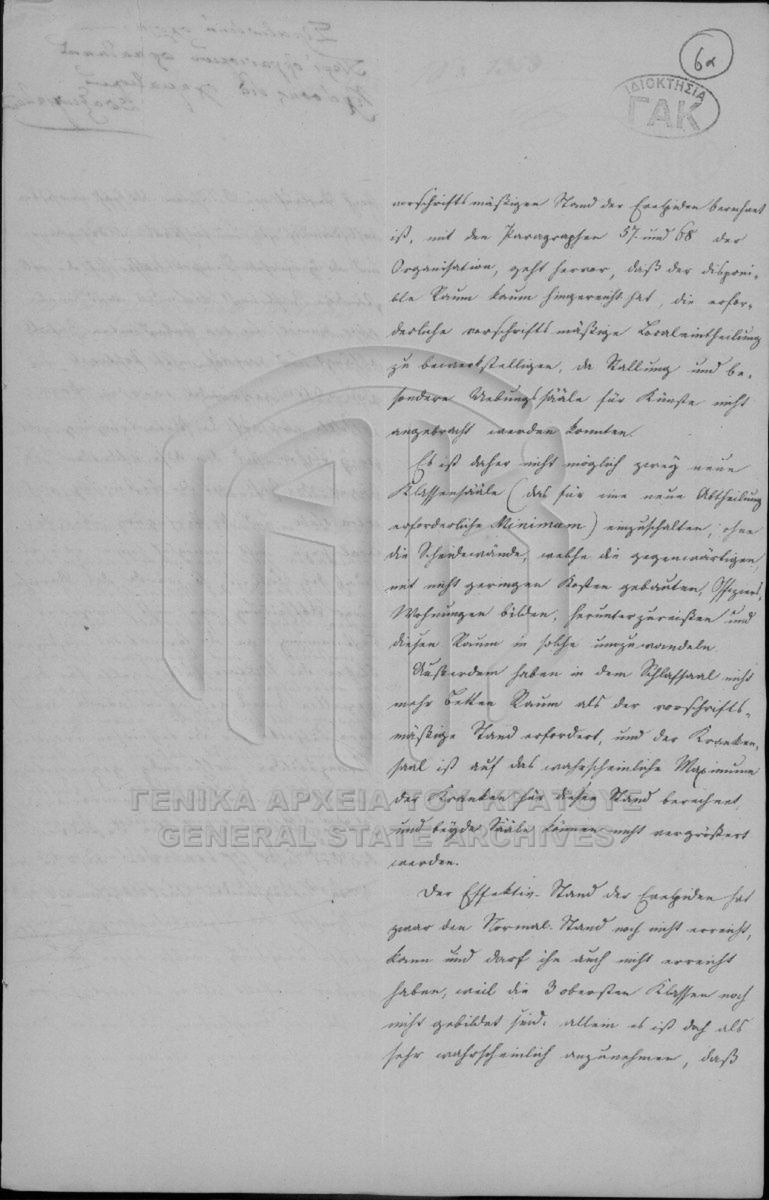 6α
ΙΔΙΟΚΤΗΣΙΑ
ΓΑΚ
vorschriftsmäßigen Stand der Evelpiden berechnet
ist, mit den Paragraphen 57 und 68 der
Organisation, geht hervor, daß der disponi-
ble Raum kaum hingereicht hat, die erfor-
derliche vorschriftsmäßige Localeintheilung
zu bewerkstelligen, da Stallung und be-
sondere Uebungssääle für Künste nicht
angebracht werden konnten.
Es ist daher nicht möglich zwey neue
Klassensääle (das für eine neue Abtheilung
erforderliche Minimum) einzuschalten, ohne
die Scheidewände, welche die gegenwärtigen,
mit nicht geringen Kosten gebauten, Offiziers-
Wohnungen bilden, herunterzureißen und
diesen Raum in solche umzuwandeln.
Außerdem haben in dem Schlafsaal nicht
mehr Betten Raum als der vorschrifts-
mäßige Stand erfordert, und der Kranken-
saal ist auf das wahrscheinliche Maximum
der Kranken für diesen Stand berechnet,
und beyde Sääle können nicht vergrößert
werden.
Der Effektiv-Stand der Evelpiden hat
zwar den Normal-Stand noch nicht erreicht,
kann und darf ihn auch nicht erreicht
haben, weil die 3 obersten Klassen noch
nicht gebildet sind. allein es ist doch als
sehr wahrscheinlich anzunehmen, daß
ΓΕΝΙΚΑ ΑΡΧΕΙΑ ΤΟΥ ΚΡΑΤΟΥΣ
GENERAL STATE ARCHIVES